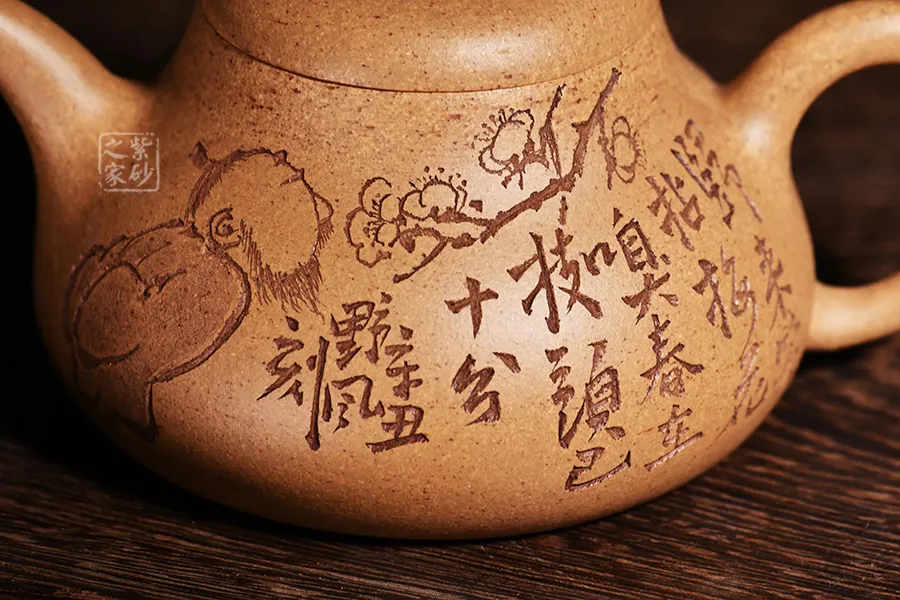 歸来
拈梅花
嗅春在
枝頭已
十分
辛丑
野風
刻
紫砂
之家